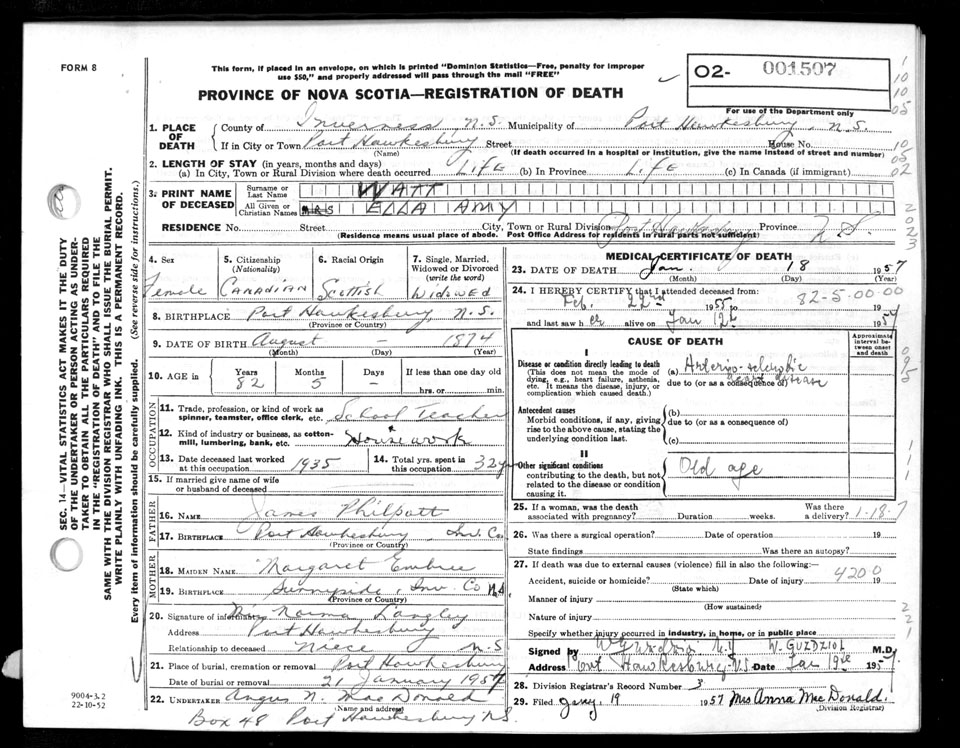 FORM 8
This form, if placed in an envelope, on which is printed "Dominion Statistics—Free, penalty for improper
use $50," and properly addressed will pass through the mail "FREE"
O2- 001507
For use of the Department only
PROVINCE OF NOVA SCOTIA—REGISTRATION OF DEATH
1. PLACE OF DEATH
County of Inverness, N.S. Municipality of Port Hawkesbury, N.S.
If in City or Town Port Hawkesbury Street House No.
(Name) (If death occurred in a hospital or institution, give the name instead of street and number)
2. LENGTH OF STAY (in years, months and days)
(a) In City, Town or Rural Division where death occurred LIFE (b) In Province LIFE (c) In Canada (if immigrant)
3. PRINT NAME OF DECEASED
Surname or Last Name WATT
All Given or Christian Names MRS ELLA AMY
RESIDENCE No. Street City, Town or Rural Division Port Hawkesbury Province N.S.
(Residence means usual place of abode. Post Office Address for residents in rural parts not sufficient)
4. Sex Female
5. Citizenship (Nationality) CANADIAN
6. Racial Origin Scottish
7. Single, Married, Widowed or Divorced (write the word) WIDOWED
8. BIRTHPLACE Port Hawkesbury, N.S.
(Province or Country)
9. DATE OF BIRTH August - 1874
(Month) (Day) (Year)
10. AGE in Years 82 Months 5 Days - If less than one day old hrs. or min.
OCCUPATION
11. Trade, profession, or kind of work as spinner, teamster, office clerk, etc. School Teacher
12. Kind of industry or business, as cotton-mill, lumbering, bank, etc. Housework
13. Date deceased last worked at this occupation 1935
14. Total yrs. spent in this occupation 32 yr
15. If married give name of wife or husband of deceased
FATHER
16. NAME James Philpott
17. BIRTHPLACE Port Hawkesbury, Inv. Co
(Province or Country)
MOTHER
18. MAIDEN NAME Margaret Embree
19. BIRTHPLACE Sunnyside, Inv. Co N.S.
(Province or Country)
20. Signature of informant Norma Langley
Address Port Hawkesbury
Relationship to deceased niece N.S
21. Place of burial, cremation or removal Port Hawkesbury
Date of burial or removal 21 January 1957
22. UNDERTAKER Angus N. MacDonald
(Name and address)
Box 48 Port Hawkesbury N.S.
MEDICAL CERTIFICATE OF DEATH
23. DATE OF DEATH Jan. 18 1957
(Month) (Day) (Year)
24. I HEREBY CERTIFY that I attended deceased from:
Feb. 22nd 1955 to 82-5-00-00
and last saw her alive on Jan 12th 1957
CAUSE OF DEATH
Approximate interval between onset and death
I
Disease or condition directly leading to death
(This does not mean the mode of dying, e.g., heart failure, asthenia, etc. It means the disease, injury, or complication which caused death.)
(a) Arterio-sclerotic heart disease
due to (or as a consequence of)
Antecedent causes
Morbid conditions, if any, giving rise to the above cause, stating the underlying condition last.
(b)
due to (or as a consequence of)
(c)
II
Other significant conditions
contributing to the death, but not related to the disease or condition causing it.
Old age
25. If a woman, was the death associated with pregnancy? Duration weeks. Was there a delivery? 1-18-7
26. Was there a surgical operation? Date of operation 19
State findings Was there an autopsy?
27. If death was due to external causes (violence) fill in also the following:
4200
Accident, suicide or homicide? Date of injury 19
(State which)
Manner of injury
(How sustained)
Nature of injury
Specify whether injury occurred in industry, in home, or in public place
Signed by W Guzdziol M.D. W. GUZDZIOL M.D.
Address Port Hawkesbury N.S. Date Jan 19th 1957.
28. Division Registrar's Record Number 3
29. Filed Jany. 19 1957 Mrs Anna MacDonald.
(Division Registrar)
9004-3.2
22-10-52
SEC. 14—VITAL STATISTICS ACT MAKES IT THE DUTY
OF THE UNDERTAKER OR PERSON ACTING AS UNDER-
TAKER TO OBTAIN ALL THE PARTICULARS REQUIRED
IN THE "REGISTRATION OF DEATH" AND TO FILE THE
SAME WITH THE DIVISION REGISTRAR WHO SHALL ISSUE THE BURIAL PERMIT.
WRITE PLAINLY WITH UNFADING INK. THIS IS A PERMANENT RECORD.
Every item of information should be carefully supplied. (See reverse side for instructions.)